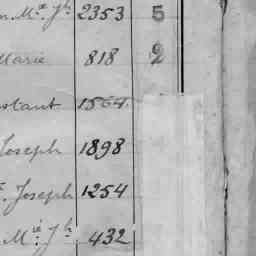 n Mie Jh 2353 5
Marie 818 2
nstant 1564
Joseph 1898
Joseph 1254
Mie Jh 432